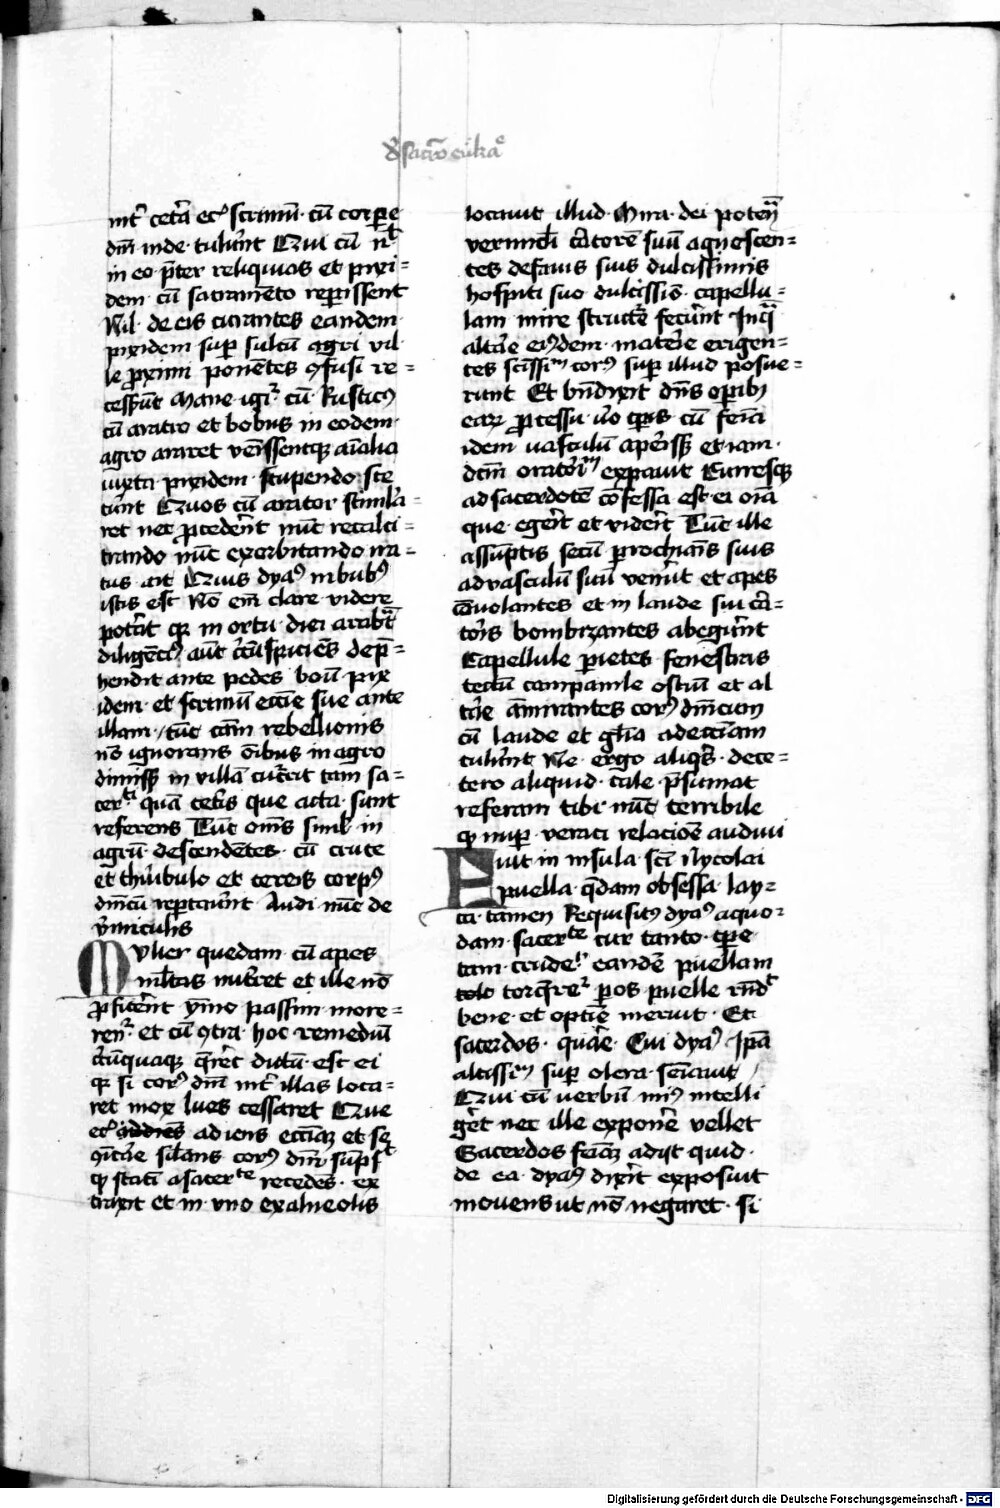 de sacro euka^e
int̄ cet̄a ecc̄ scriniū cū corpe
dm̄ inde tulerūt Qui cū n^l
in eo p̄ter reliquias et pixi=
dem cū sacramēto reperissent
Nil de eis curantes eandem
pixidem sup̄ sulcū agri vil
le proximi ponentes 9fusi re=
cesserūt Mane igr̄ cū Rustic9
cū aratro et bobus in eodem
agro araret venissentq; aīalia
iuxta pixidem stupendo ste
terūt Quos cū arator stimla=
ret nec procederēt nūc recalci=
trando nūc exorbitando ira=
tus ait Quis dya9 in bub9
istis est Nō em̄ clare videre
poterāt qr in ortu diei arabāt
diligēci9 aūt circūspiciēs dep̄=
hendit ante pedes boū pix
idem et scriniū eccīe sue ante
illam tūc cām rebellionis
nō ignorans oībus in agro
dimissis in villā cucurrit tam sa=
cerᵗⁱ quā cetīs que acta sunt
referens Tūc om̄s siml̄ in
agrū descendētes cū cruce
et thuribulo et cereis corp9
dm̄cū reportauerūt Audi nūc de
vermiculis
Mulier quedam cū apes
ml̄tas nutriret et ille nō
proficerēt ymo passim more=
ren̄t et cū 9tra hoc remediū
circūquaq; q̄reret dictū est ei
qr si corp9 dm̄ int̄ illas loca=
ret mox lues cessaret Que
ecc̄ addiens adiens ecciaz et se
9icāre sil̄ans corp9 dm̄ sūps^t
q statī a sacerᵗᵉ recedes ex
traxit et in vno ex alueolis
locauit illud Mira dei potenā
vermicl̄i cātorē suū agnoscen=
tes de fauis suis dulcissimis
hospiti suo dulcissiō capellu=
lam mire structe fecerūt In q̄
altāe ei9dem mat̄ie erigen=
tes sctissīm corp9 sup illud posue=
runt Et bn̄dixit dn̄s operib9
earz processu v̄o tp̄is cū feīa
idem vasculū aperiss; et iam
dcm̄ oratorīm expauit Curresq;
ad sacerdotē cōfessa est ei oīa
que egerit et viderit Tūc ille
assūptis secū prochianīs suis
ad vasculū simul venerūt et apes
cōuolantes et in laude sui cā=
toris bombizantes abegerūt
Capellule pietes fenestras
tectū campanile ostiū et al
tāe āmirantes corp9 dm̄cum
cū laude et gl̄ia ad ecciam
tulerūt Ne ergo aliq̄s dece=
tero aliquid tale p̄sumat
referam tibi nūc terribile
q nup veraci relacioē audiui
Fuit in insula scī Nycolai
puella q̄dam obsessa lay=
ca tamen Requisit9 dya9 a quo=
dam sacerᵗᵉ cur tanto tp̄e
tam crude^r eandē puellam
tolo torq̄re^r pos puelle r̄nd^t
bene et optīe meruit Et
sacerdos quāe Cui dya9 Ipā
altissīm sup olera semīauit
Qui cū verbū mi9 intelli
geret nec ille exponē vellet
Sacerdos feiaz adijt quid
de ea dya9 dixerit exposuit
mouens ut nō negaret si
Digitalisierung gefördert durch die Deutsche Forschungsgemeinschaft - DFG